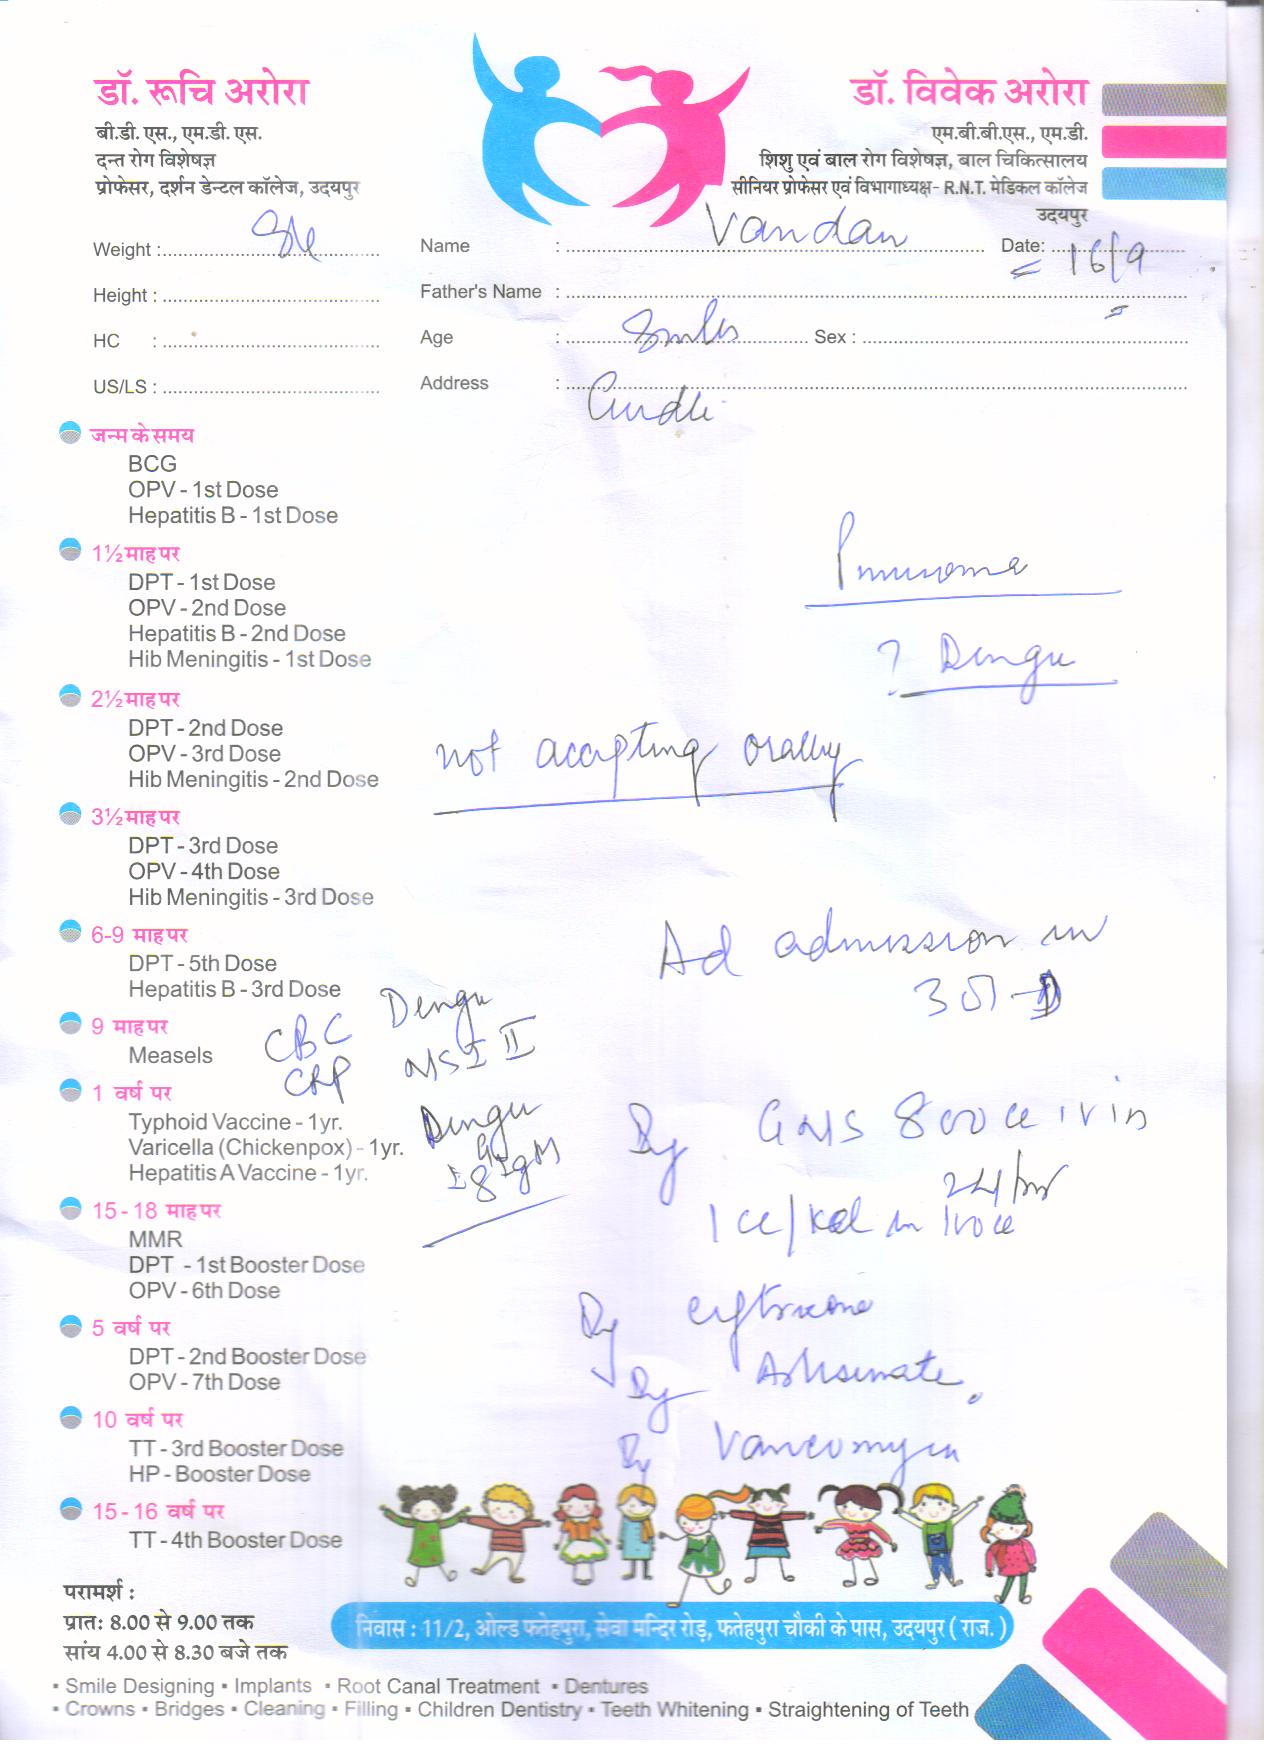 डॉ. रूचि अरोरा
बी.डी. एस., एम.डी. एस.
दन्त रोग विशेषज्ञ
प्रोफेसर, दर्शन डेन्टल कॉलेज, उदयपुर
डॉ. विवेक अरोरा
एम.बी.बी.एस., एम.डी.
शिशु एवं बाल रोग विशेषज्ञ, बाल चिकित्सालय
सीनियर प्रोफेसर एवं विभागाध्यक्ष- R.N.T. मेडिकल कॉलेज
उदयपुर
Weight :
Name : Vandan Date: 16/9
Height :
Father's Name :
HC :
Age : Sex :
US/LS :
Address :
जन्म के समय
BCG
OPV - 1st Dose
Hepatitis B - 1st Dose
1½ माह पर
DPT - 1st Dose
OPV - 2nd Dose
Hepatitis B - 2nd Dose
Hib Meningitis - 1st Dose
? Dengu
2½ माह पर
DPT - 2nd Dose
OPV - 3rd Dose
Hib Meningitis - 2nd Dose
not accepting orally
3½ माह पर
DPT - 3rd Dose
OPV - 4th Dose
Hib Meningitis - 3rd Dose
6-9 माह पर
DPT - 5th Dose
Hepatitis B - 3rd Dose
Ad admission in
9 माह पर
Measels
CBC Dengu
CRP
1 वर्ष पर
Typhoid Vaccine - 1yr.
Varicella (Chickenpox) - 1yr.
Hepatitis A Vaccine - 1yr.
Dengu
IgG IgM
15 - 18 माह पर
MMR
DPT - 1st Booster Dose
OPV - 6th Dose
5 वर्ष पर
DPT - 2nd Booster Dose
OPV - 7th Dose
10 वर्ष पर
TT - 3rd Booster Dose
HP - Booster Dose
Vancomycin
15 - 16 वर्ष पर
TT - 4th Booster Dose
परामर्श :
प्रातः 8.00 से 9.00 तक
सांय 4.00 से 8.30 बजे तक
निवास : 11/2, ओल्ड फतेहपुरा, सेवा मन्दिर रोड़, फतेहपुरा चौकी के पास, उदयपुर ( राज. )
▪ Smile Designing ▪ Implants ▪ Root Canal Treatment ▪ Dentures
▪ Crowns ▪ Bridges ▪ Cleaning ▪ Filling ▪ Children Dentistry ▪ Teeth Whitening ▪ Straightening of Teeth